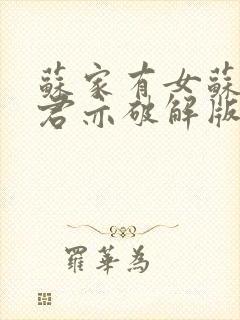 蘇家有女蘇
君亦破解版
羅華為